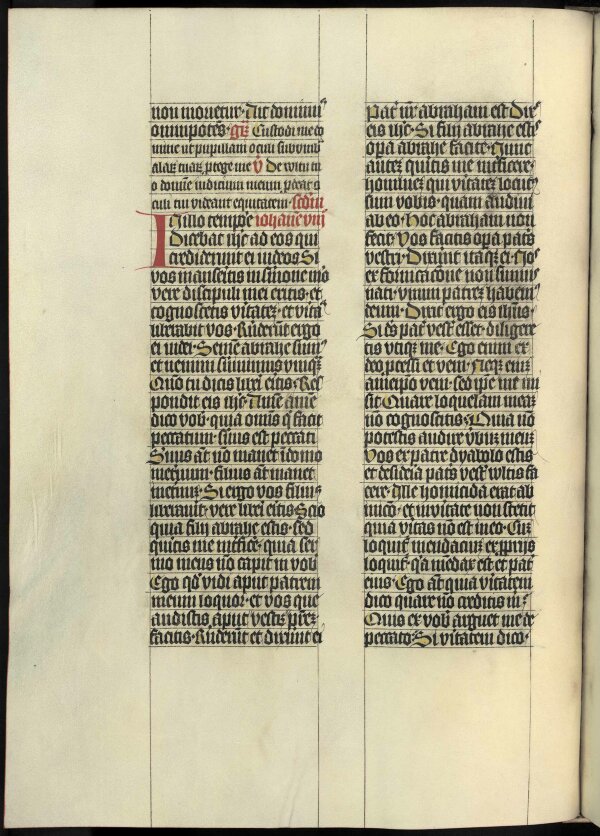 non movetur· Dic domini
omnipotēs· gr̄ Custodi me do
mine ut pupillam oculi sub umb
alaꝝ tuaꝝ protege me v̄ De vultu tu
o domīe iudicium meum prodeat o
culi tui videant equitatem· scdm
In illo tempore iohanē viij
Dicebat ihc ad eos qui
crediderunt ei iudeos Si
vos manseritis in sermone meo
vere discipuli mei eritis· et
cognoscetis vitatē· et vitas
liberabit vos· Rnderūt ergo
ei iudei· Semē abrahe sumꝰ
et nemini servivimus unqꝫ·
Quō tu dicis liberi eritis· Res
pondit eis ihc· Amē amē
dico vob· quia omīs q facit
peccatum· servus est peccati
Servus aūt nō manet ī domo
in eternum· filius aūt manet
in eternū· Si ergo vos filius
liberavit· vere liberi eritis· Scio
quia filij abrahe estis· sed
queritis me interficere· quia ser
mo meus nō capit in vob
Ego qd vidi aput patrem
meum loquor· et vos que
audistis aput vestrū prēꝫ
facitis· Rnderūt et dixerūt ei
Pater nr̄ abraham est Dic
eis ihc· Si filij abrahe estis
opa abrahe facite· Nunc
autē queritis me interficere·
hominē qui vitatē locutꝰ
sum vobis· quam audivi
a deo· Hoc abraham non
fecit· Vos facitis opa patris
vestri· Dixerūt itaqꝫ ei· Nos
ex fornicatione non sumus
nati· unum patrē habemꝰ
deum· Dixit ergo eis ihūs·
Si dūs pater vest esset· diligere
tis utiqꝫ me· Ego enim ex
deo processi et veni· Neqꝫ eni
a meipo veni· sed ipe me mi
sit· Quare loquelam meā
nō cognoscitis· Quia nō
potestis audire vbū meū
Vos ex patre dyabolo estis
et desideria patris vestri vultis fa
cere· Ille homicida erat ab
inicio· et in vitate non stetit
quia vitas nō est in eo· Cū
loquitur mendaciū ex pprijs
loquit· qa mēdax est et pater
eius· Ego aūt quia vitatem
dico quare nō creditis mꝫ
Quis ex vob arguet me de
peccato· Si vitatem dico·